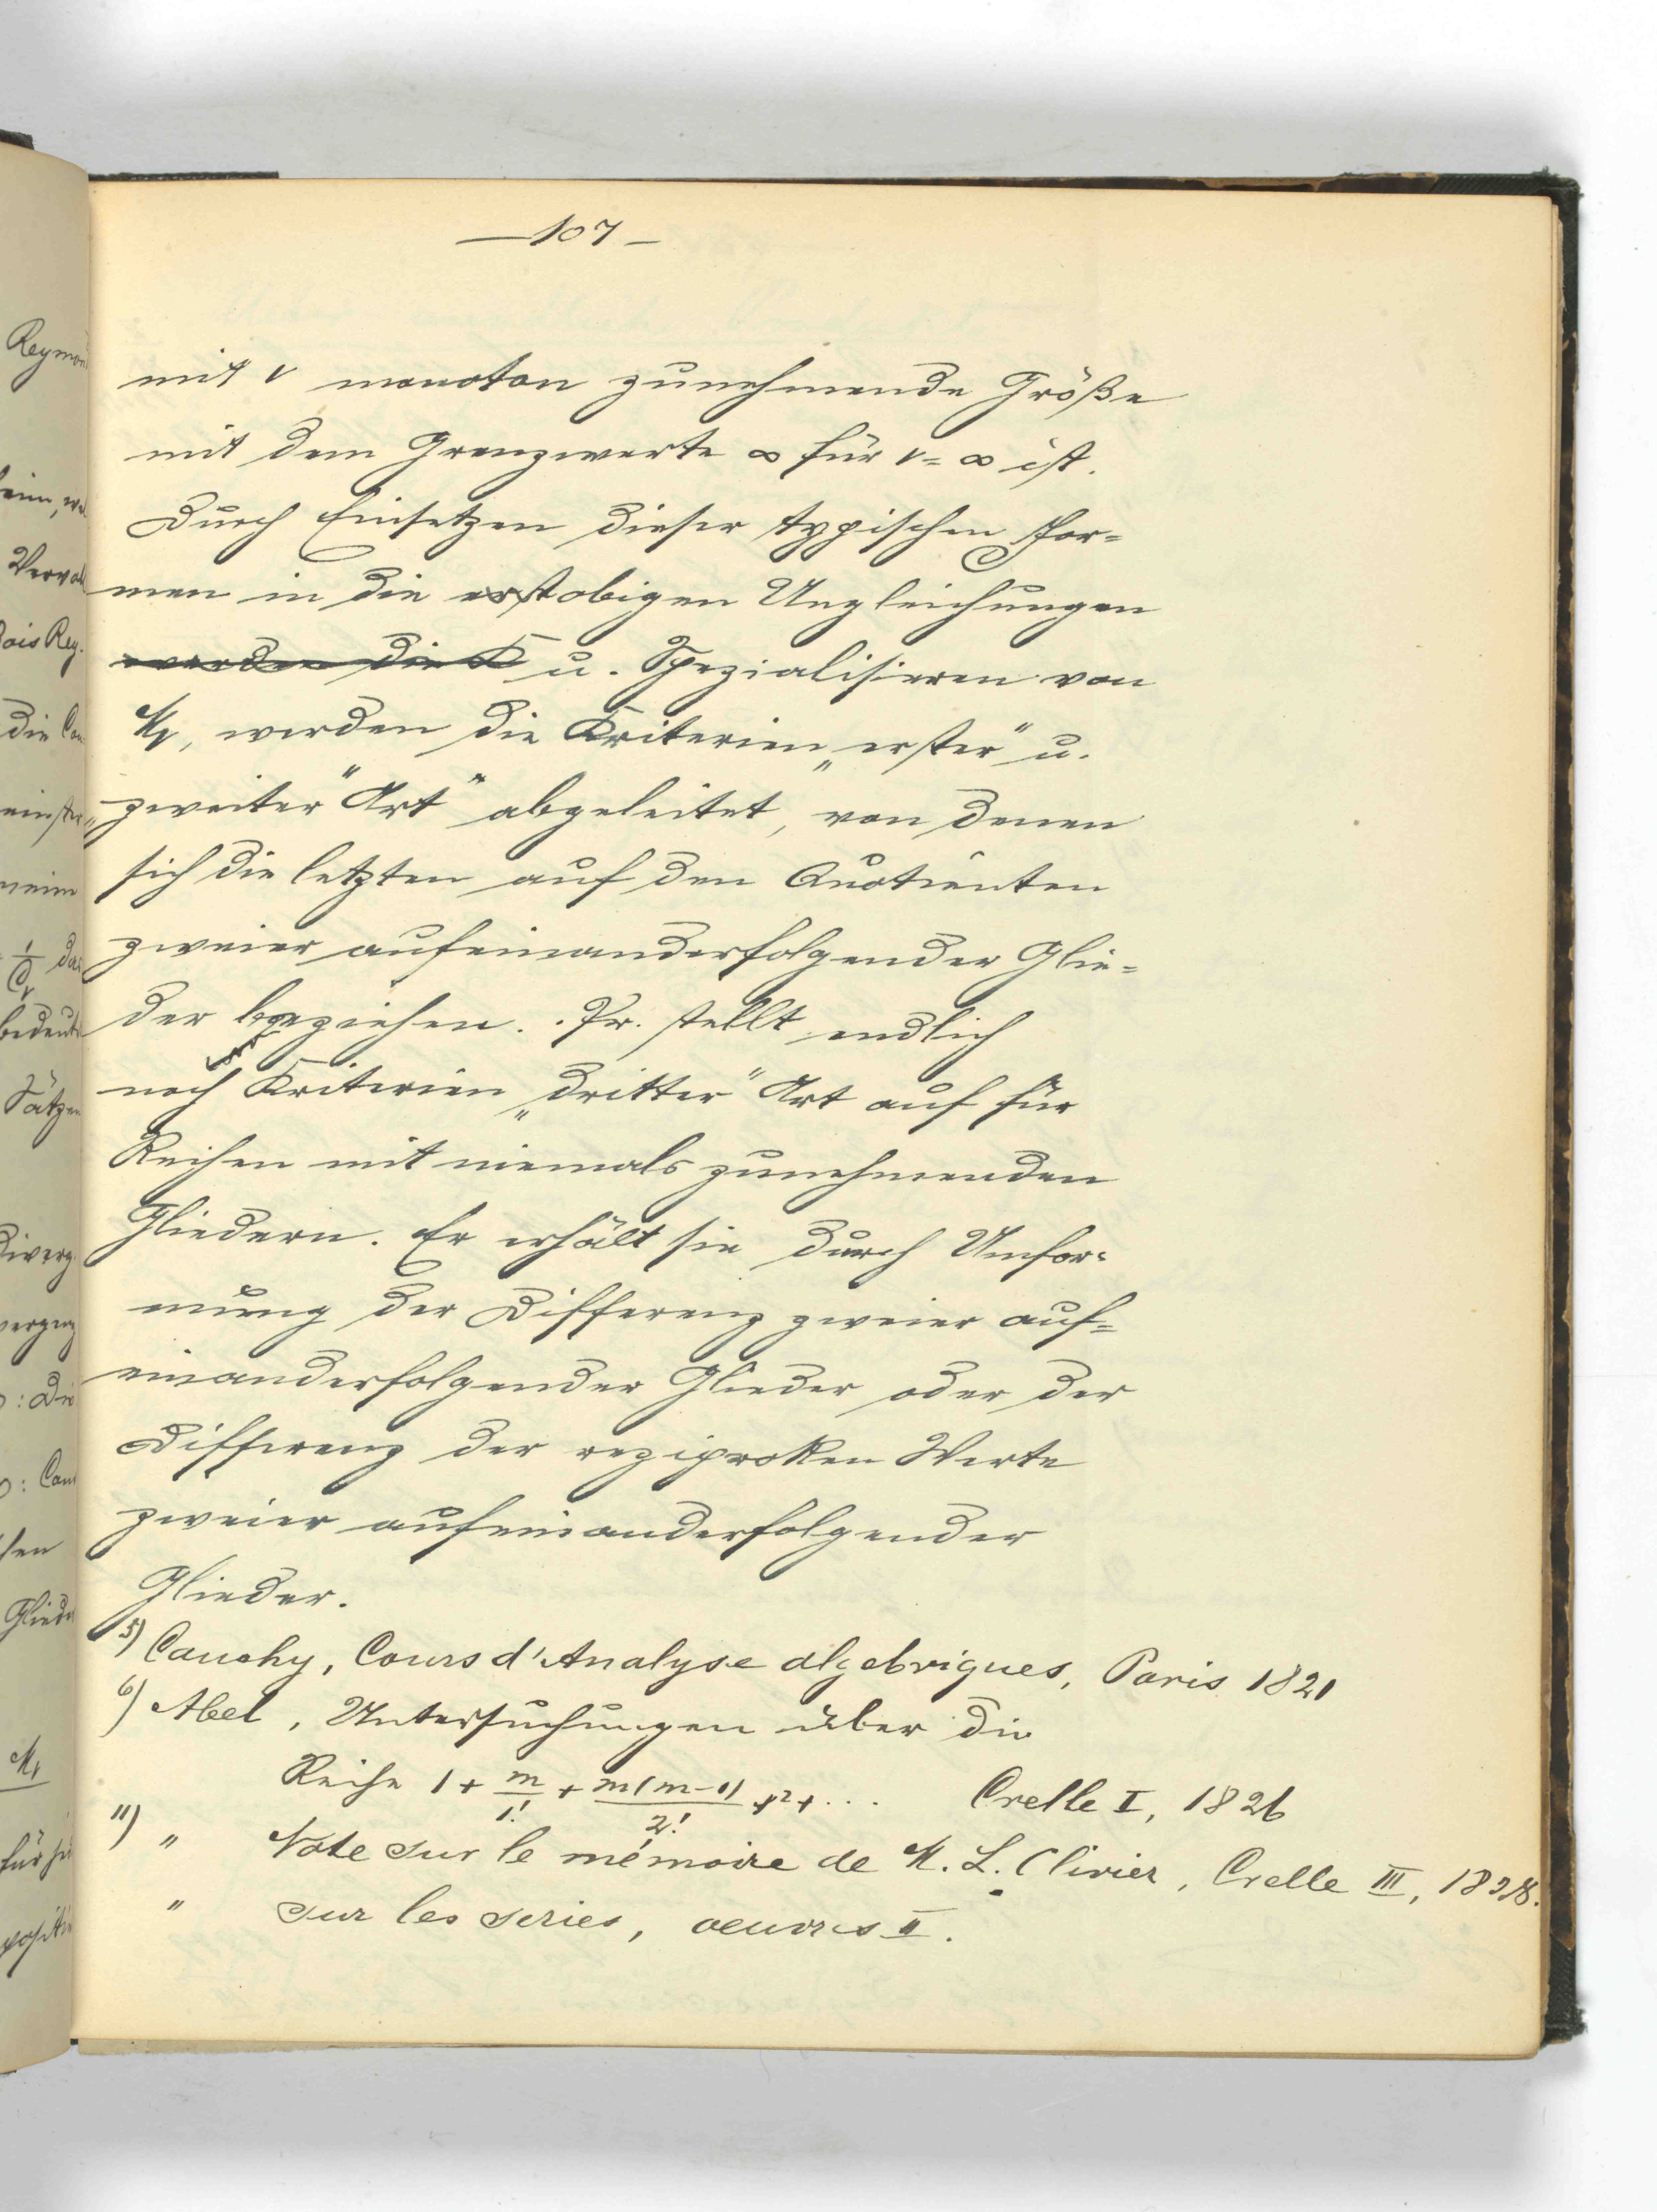 —107—
mit ν monoton zunehmende Größe
mit dem Grenzwerte ∞ für ν = ∞ ist.
Durch Einsetzen dieser typischen For=
men in die obigen Ungleichungen
werden die K u. Spezialisieren von
Mν, werden die Kriterien „erster" u.
„zweiter" Art" abgeleitet, von denen
sich die letzten auf den Quotienten
zweier aufeinanderfolgender Glie=
der beziehen. Pr. stellt endlich
noch Kriterien „dritter" Art auf für
Reihen mit niemals zunehmenden
Gliedern. Er erhält sie durch Umfor=
mung der Differenz zweier auf=
einanderfolgender Glieder oder der
Differenz der reziproken Werte
zweier aufeinanderfolgender
Glieder.
5) Cauchy, Cours d'Analyse algebriques, Paris 1821
6) Abel, Untersuchungen über die
Reihe 1 + m/1! + m(m-1)/2! x² + ... Crelle I, 1826
11) " Note sur le mémoire de M. L. Olivier, Crelle III, 1828.
" sur les series, oeuvres II.